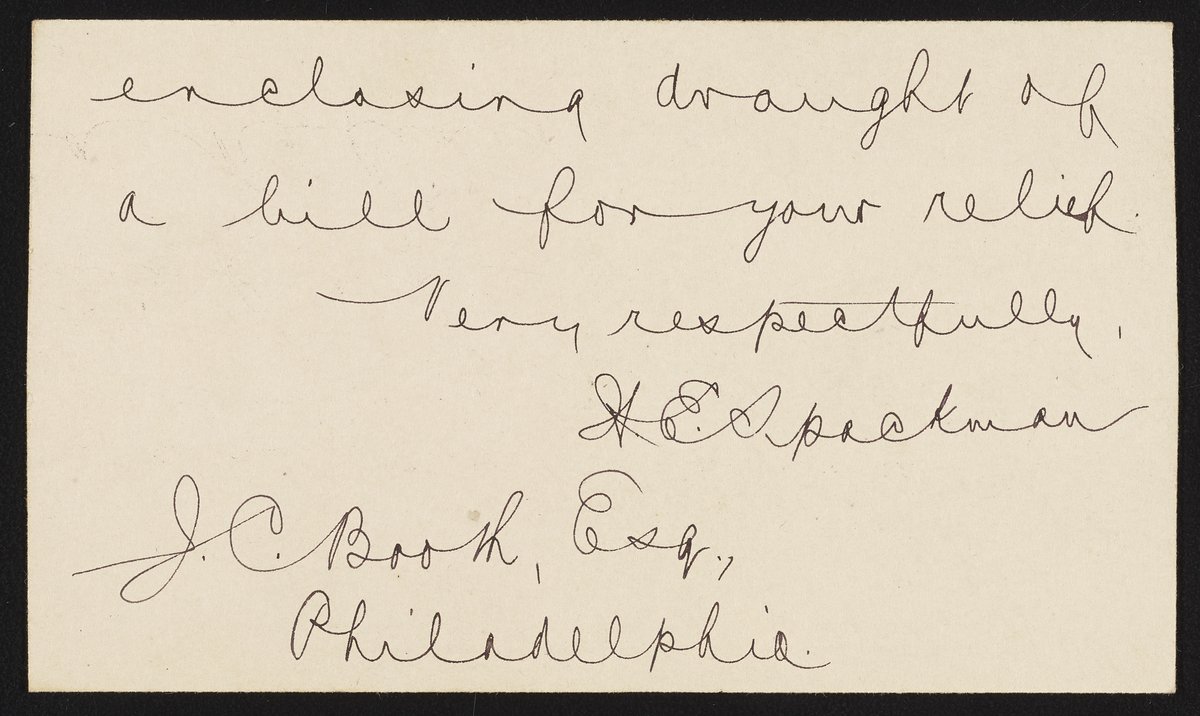 enclosing draught of
a bill for your relief.
Very respectfully,
H. E. Spackman
J. C. Booth, Esq.,
Philadelphia.